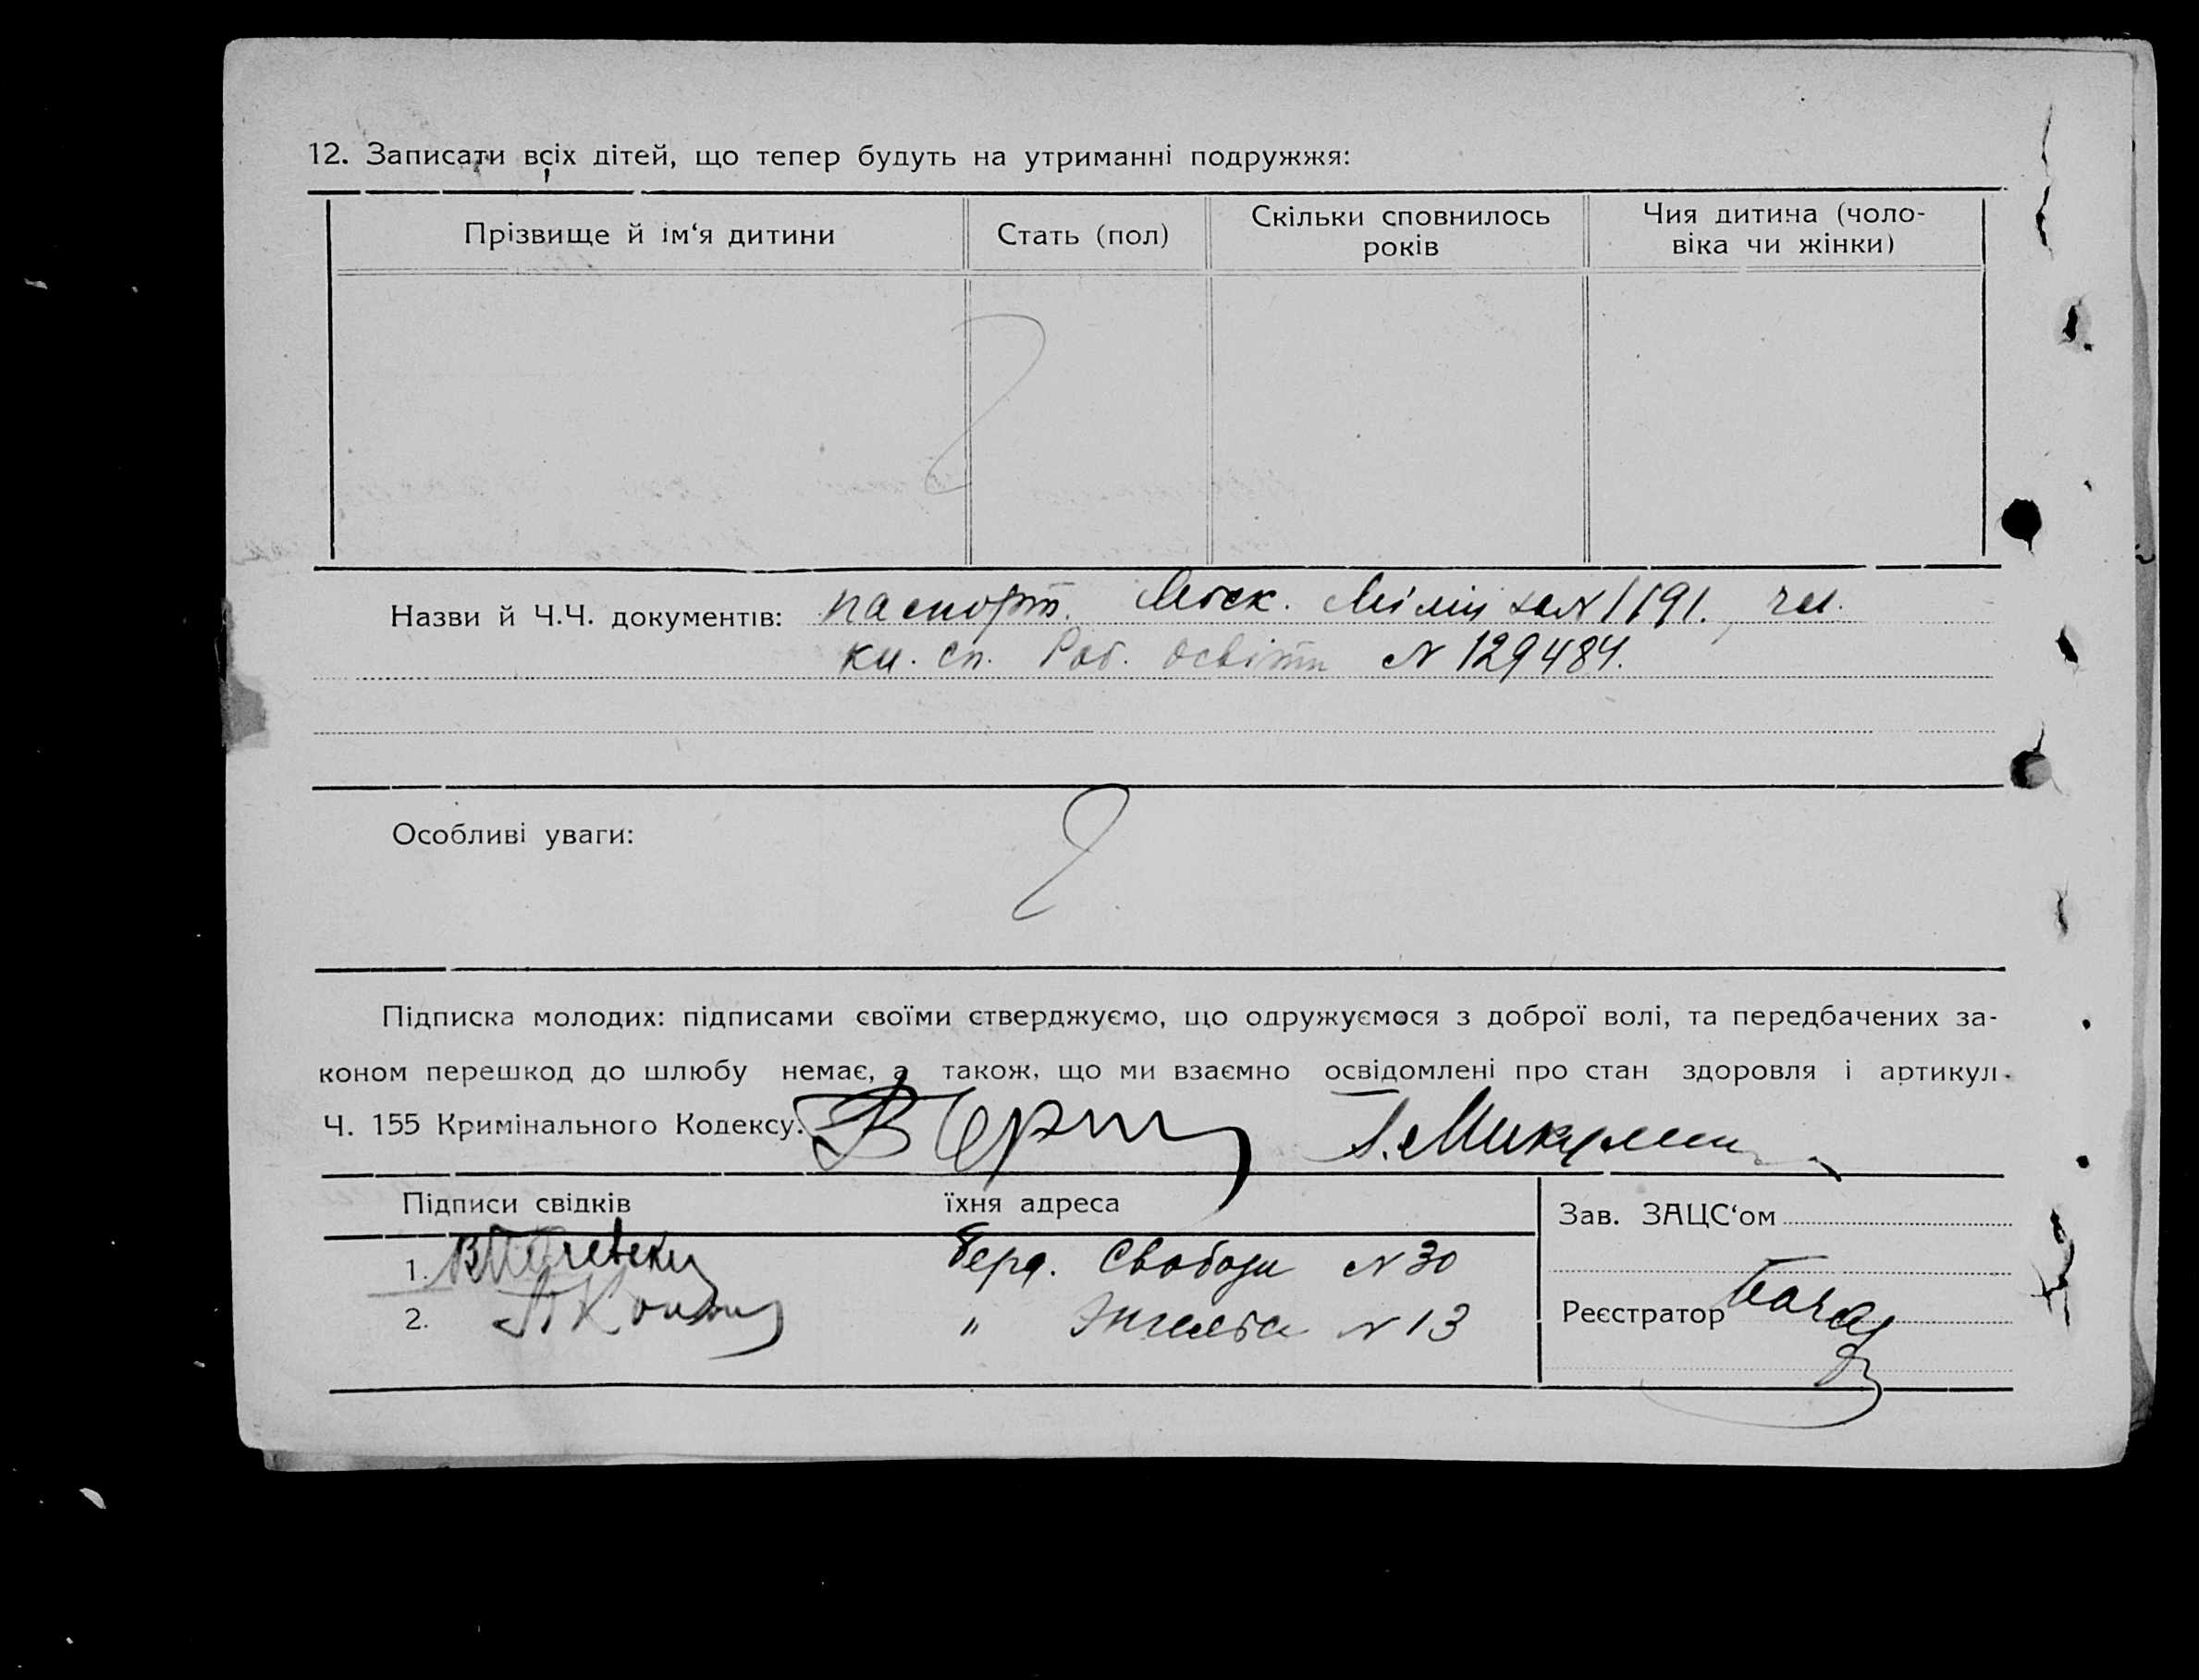 12. Записати всіх дітей, що тепер будуть на утриманні подружжя:
Прізвище й ім‘я дитини
Стать (пол)
Скільки сповнилось
років
Чия дитина (чоло-
віка чи жінки)
Назви й Ч.Ч. документів: паспорт. Міліц N 1191., чл.
кн. сп. Роб. освіти N 129484.
Особливі уваги:
Підписка молодих: підписами своїми стверджуємо, що одружуємося з доброї волі, та передбачених за-
коном перешкод до шлюбу немає, а також, що ми взаємно освідомлені про стан здоровля і артикул.
Ч. 155 Кримінального Кодексу.
Підписи свідків
їхня адреса
1. Берд. Свободи N 30
2. " Энгельса N 13
Зав. ЗАЦС‘ом
Реєстратор